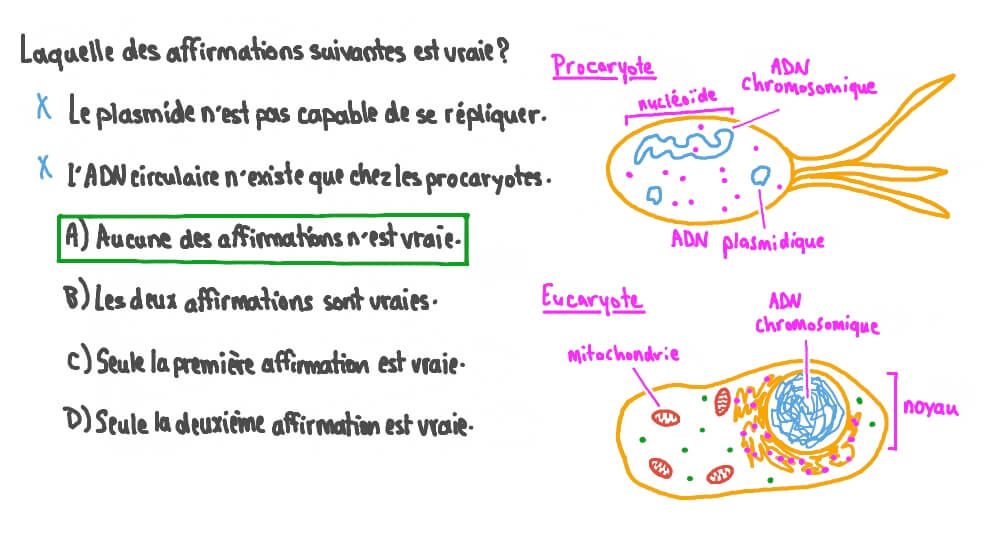 Laquelle des affirmations suivantes est vraie?
X Le plasmide n'est pas capable de se répliquer.
X L'ADN circulaire n'existe que chez les procaryotes.
A) Aucune des affirmations n'est vraie.
B) Les deux affirmations sont vraies.
C) Seule la première affirmation est vraie.
D) Seule la deuxième affirmation est vraie.
Procaryote
nucléoïde
ADN
chromosomique
ADN plasmidique
Eucaryote
ADN
chromosomique
Mitochondrie
noyau